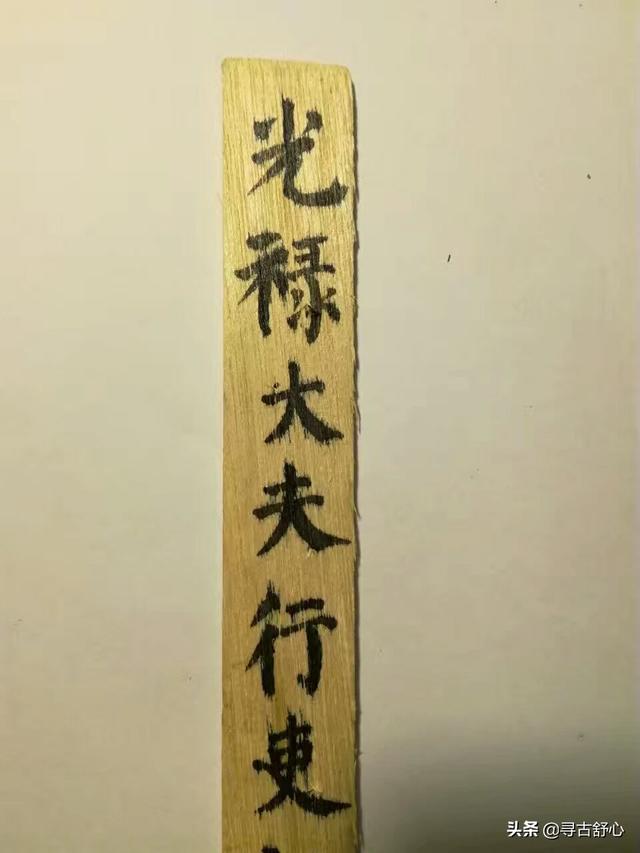 光禄大夫行吏
头条 @寻古舒心